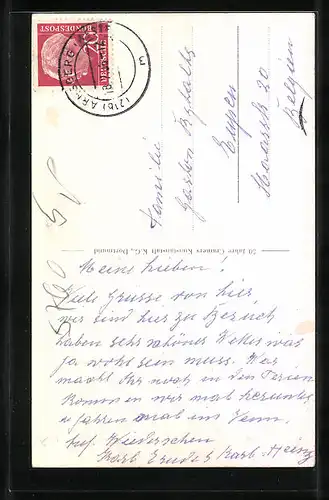 DEUTSCHE BUNDESPOST
20
(21b) ARNSBERG
3
Familie
Gaston
Eupen
Haasstr 20
Belgien
50 Jahre Cramers Kunstanstalt K.G., Dortmund
Meine Lieben!
Viele Grüsse von hier,
wir sind hier zu Besuch
haben sehr schönes Wetter was
ja wohl sein muss. Was
macht Ihr noch in den Ferien
kommen wir mal herunter
u fahren mal ins Venn.
Auf Wiedersehen
Karl Karl-Heinz
5760